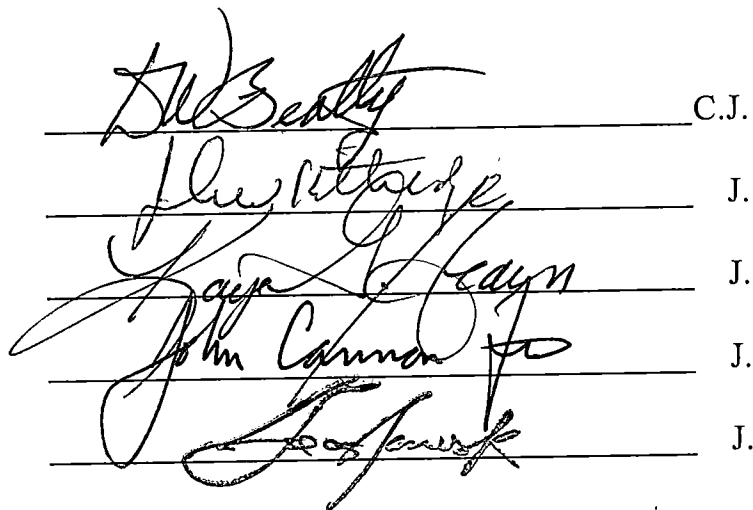 DWBeatty C.J.
J.
Kaye G. Hearn J.
John Cannon Few J.
J.